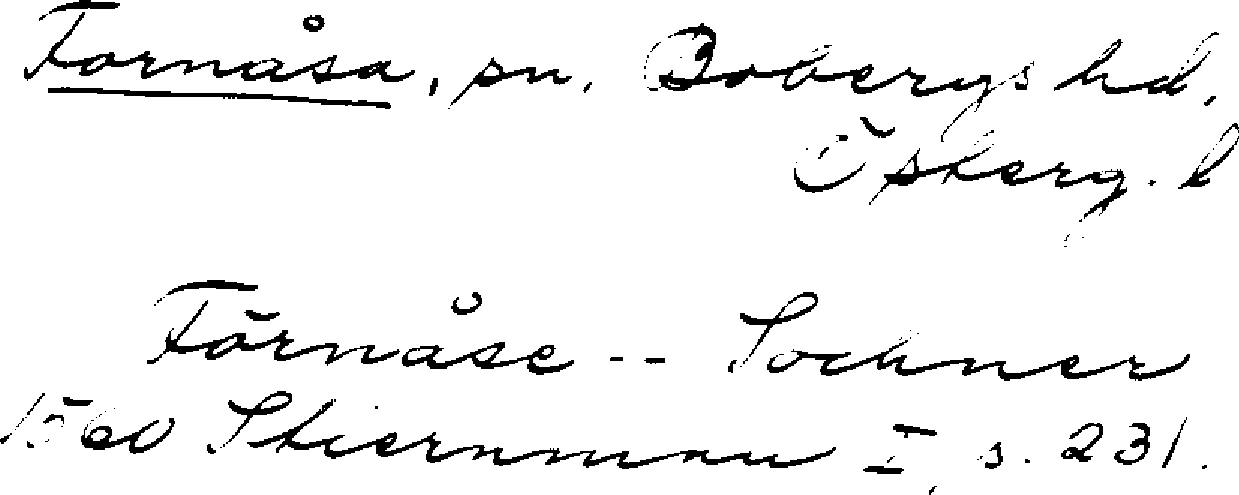 Fornåsa, sn. Bobergs hd,
Österg. l
Förnåse -- Sochner
1560 Stiernman I, s. 231.